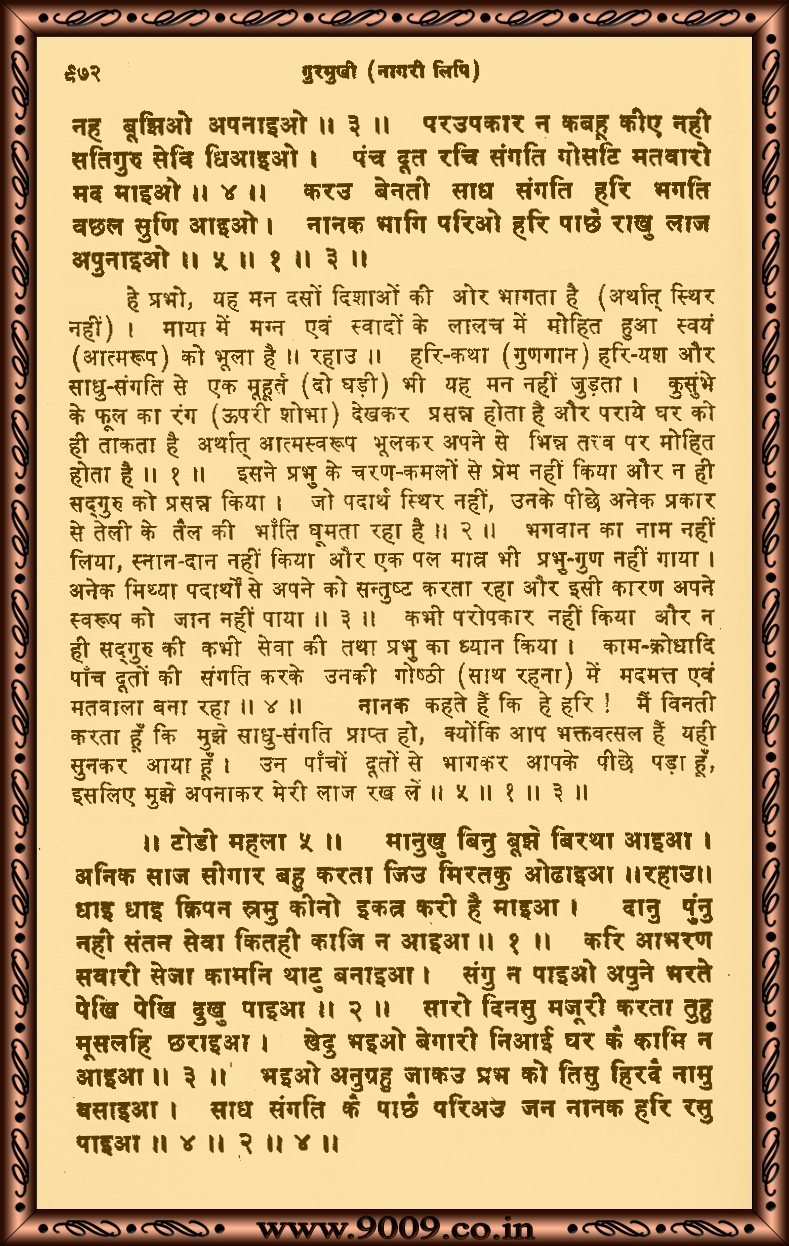 ९७२ गुरमुखी (नागरी लिपि)
नह बूझिओ अपनाइओ ॥ ३ ॥ परउपकार न कबहू कीए नही
सतिगुरु सेवि धिआइओ । पंच दूत रचि संगति गोसटि मतवारो
मद माइओ ॥ ४ ॥ करउ बेनती साध संगति हरि भगति
वछल सुणि आइओ । नानक भागि परिओ हरि पाछै राखु लाज
अपुनाइओ ॥ ५ ॥ १ ॥ ३ ॥
हे प्रभो, यह मन दसों दिशाओं की ओर भागता है (अर्थात् स्थिर
नहीं) । माया में मग्न एवं स्वादों के लालच में मोहित हुआ स्वयं
(आत्मरूप) को भूला है ॥ रहाउ ॥ हरि-कथा (गुणगान) हरि-यश और
साधु-संगति से एक मूहूर्त (दो घड़ी) भी यह मन नहीं जुड़ता । कुसुंभे
के फूल का रंग (ऊपरी शोभा) देखकर प्रसन्न होता है और पराये घर को
ही ताकता है अर्थात् आत्मस्वरूप भूलकर अपने से भिन्न तत्त्व पर मोहित
होता है ॥ १ ॥ इसने प्रभु के चरण-कमलों से प्रेम नहीं किया और न ही
सद्गुरु को प्रसन्न किया । जो पदार्थ स्थिर नहीं, उनके पीछे अनेक प्रकार
से तेली के तैल की भाँति घूमता रहा है ॥ २ ॥ भगवान का नाम नहीं
लिया, स्नान-दान नहीं किया और एक पल मात्र भी प्रभु-गुण नहीं गाया ।
अनेक मिथ्या पदार्थों से अपने को सन्तुष्ट करता रहा और इसी कारण अपने
स्वरूप को जान नहीं पाया ॥ ३ ॥ कभी परोपकार नहीं किया और न
ही सद्गुरु की कभी सेवा की तथा प्रभु का ध्यान किया । काम-क्रोधादि
पाँच दूतों की संगति करके उनकी गोष्ठी (साथ रहना) में मदमत्त एवं
मतवाला बना रहा ॥ ४ ॥ नानक कहते हैं कि हे हरि ! मैं विनती
करता हूँ कि मुझे साधु-संगति प्राप्त हो, क्योंकि आप भक्तवत्सल हैं यही
सुनकर आया हूँ । उन पाँचों दूतों से भागकर आपके पीछे पड़ा हूँ,
इसलिए मुझे अपनाकर मेरी लाज रख लें ॥ ५ ॥ १ ॥ ३ ॥
॥ टोडी महला ५ ॥ मानुखु बिनु बूझे बिरथा आइआ ।
अनिक साज सीगार बहु करता जिउ मिरतकु ओढाइआ ॥रहाउ॥
धाइ धाइ क्रिपन स्रमु कीनो इकत्र करी है माइआ । दानु पुंनु
नही संतन सेवा कितही काजि न आइआ ॥ १ ॥ करि आभरण
सवारी सेजा कामनि थाटु बनाइआ । संगु न पाइओ अपुने भरते
पेखि पेखि दुखु पाइआ ॥ २ ॥ सारो दिनसु मजूरी करता तुहु
मूसलहि छराइआ । खेदु भइओ बेगारी निआई घर कै कामि न
आइआ ॥ ३ ॥ भइओ अनुग्रहु जाकउ प्रभ को तिसु हिरदै नामु
बसाइआ । साध संगति कै पाछै परिअउ जन नानक हरि रसु
पाइआ ॥ ४ ॥ २ ॥ ४ ॥
www.9009.co.in